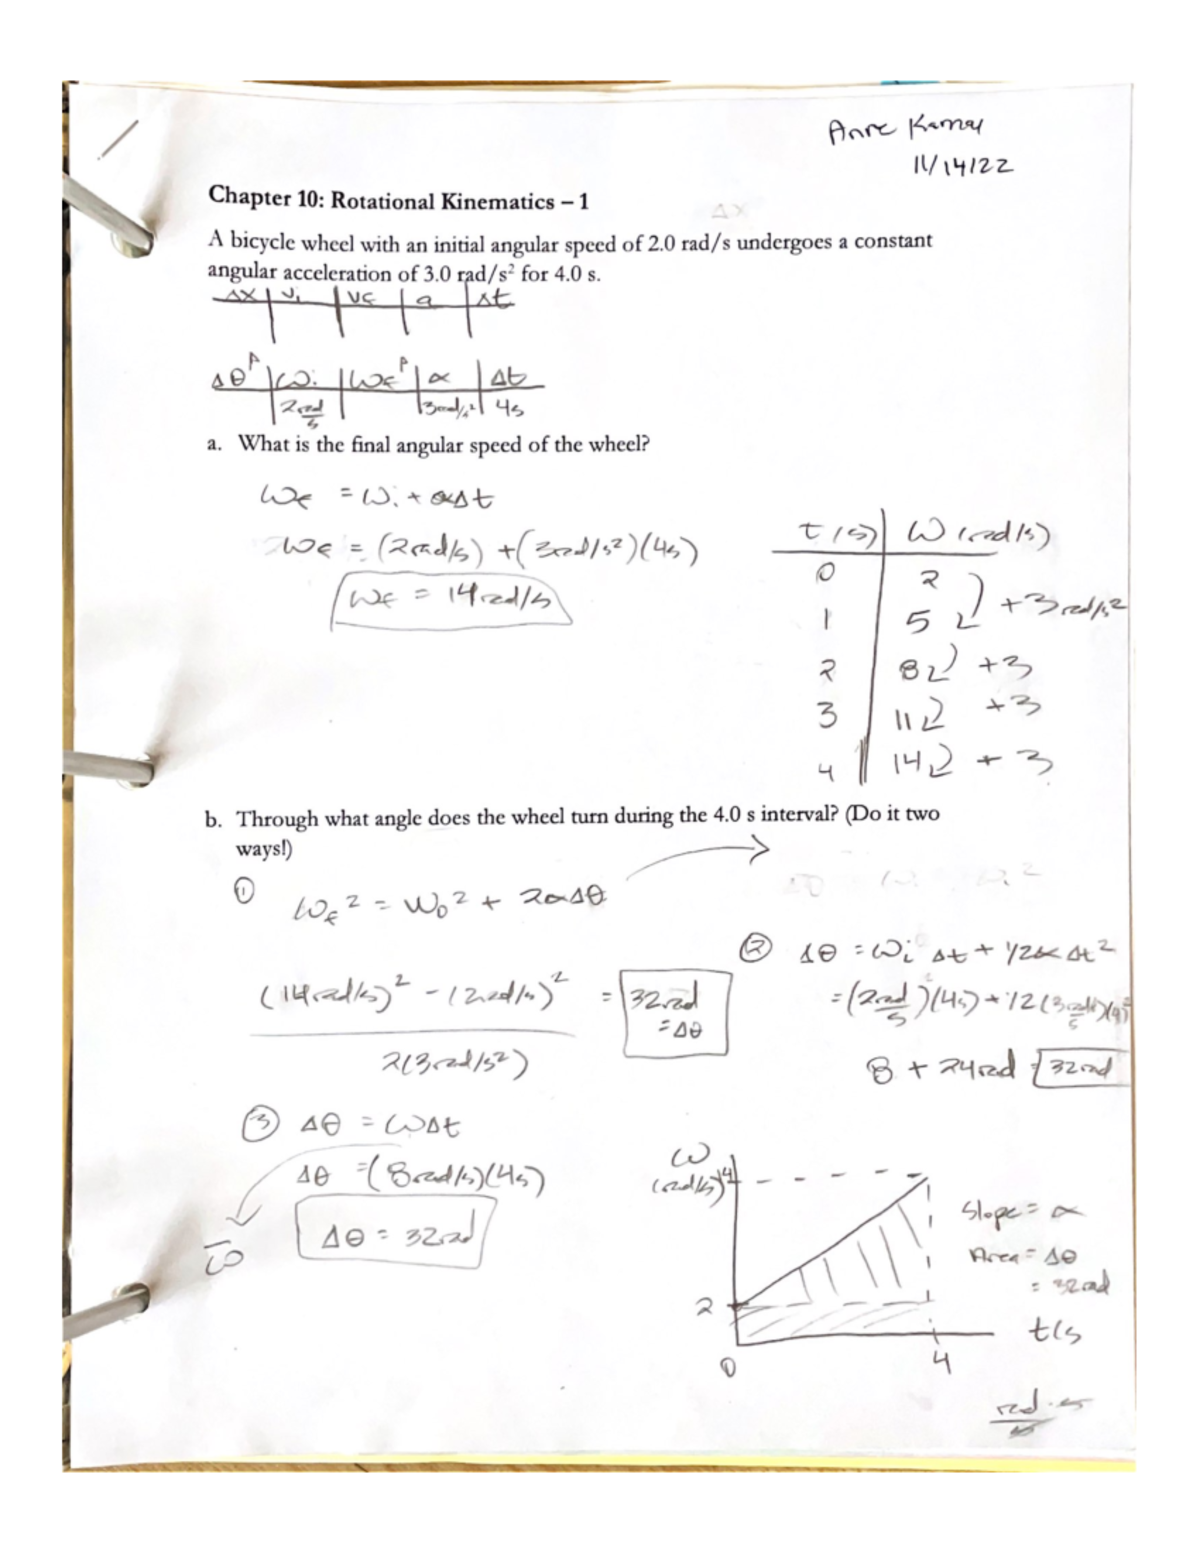 Anne Kamay
11/14/22
Chapter 10: Rotational Kinematics – 1
Δx
A bicycle wheel with an initial angular speed of 2.0 rad/s undergoes a constant
angular acceleration of 3.0 rad/s² for 4.0 s.
Δx | vi | vf | a | Δt
Δθ? | ωi | ωf? | α | Δt
2 rad/s | 3 rad/s² | 4s
a. What is the final angular speed of the wheel?
ωf = ωi + αΔt
ωf = (2rad/s) + (3rad/s²)(4s)
ωf = 14rad/s
t(s) | ω (rad/s)
0 | 2
1 | 5 +3 rad/s²
2 | 8 +3
3 | 11 +3
4 | 14 +3
b. Through what angle does the wheel turn during the 4.0 s interval? (Do it two
ways!)
① ωf² = ω0² + 2αΔθ
(14rad/s)² - (2rad/s)²
2(3rad/s²)
= 32rad
= Δθ
② Δθ = ωi Δt + 1/2α Δt²
= (2rad/s)(4s) + 1/2(3rad/s)(4)²
8 + 24rad = 32rad
③ Δθ = ωΔt
Δθ = (8rad/s)(4s)
Δθ = 32rad
ω̄
ω
(rad/s)
14
2
0
4
t(s
Slope = α
Area = Δθ
= 32rad
rad·s
s